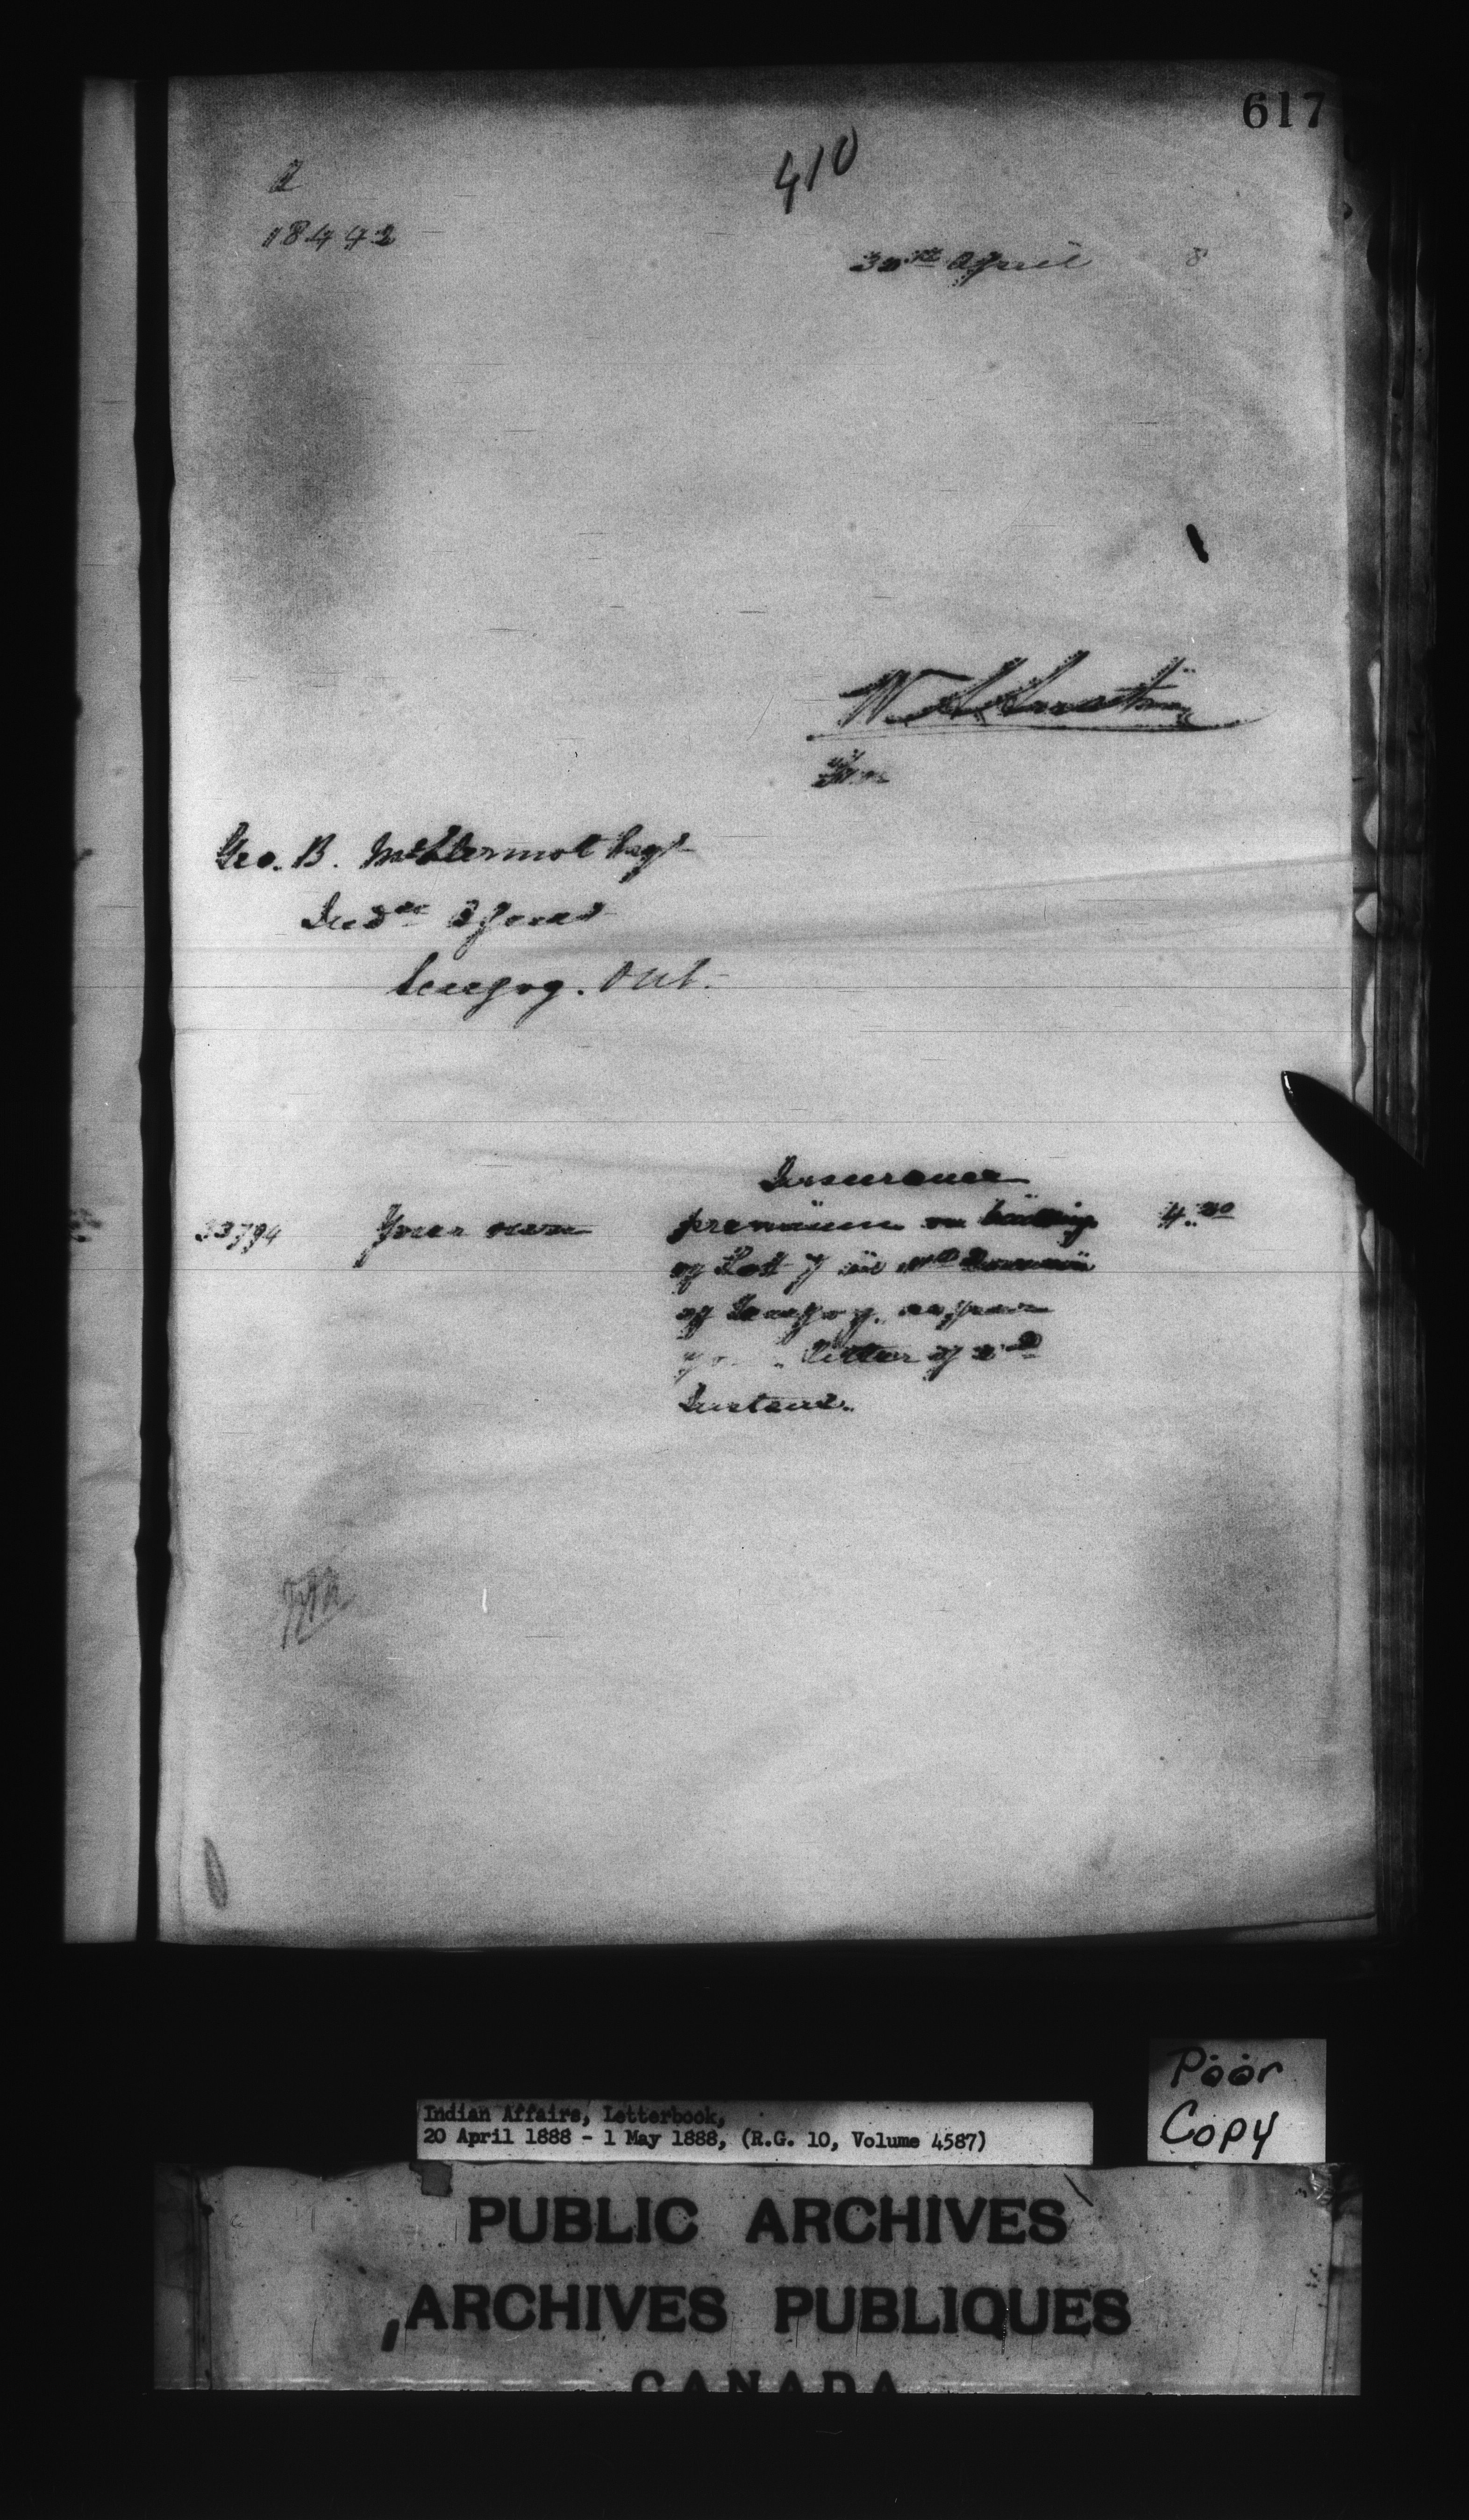 617
410
A
18442
30th April 8
W. A. Austin
For
Geo. B. McDermot Esqr
Indn Agent
Scugog. Ont.
Insurance
33794 Your own premium on building 4.20
of Lot 7 in
of Scugog. as per
your letter of 2nd
Instant.
Poor
Copy
Indian Affairs, Letterbook,
20 April 1888 - 1 May 1888, (R.G. 10, Volume 4587)
PUBLIC ARCHIVES
ARCHIVES PUBLIQUES
CANADA